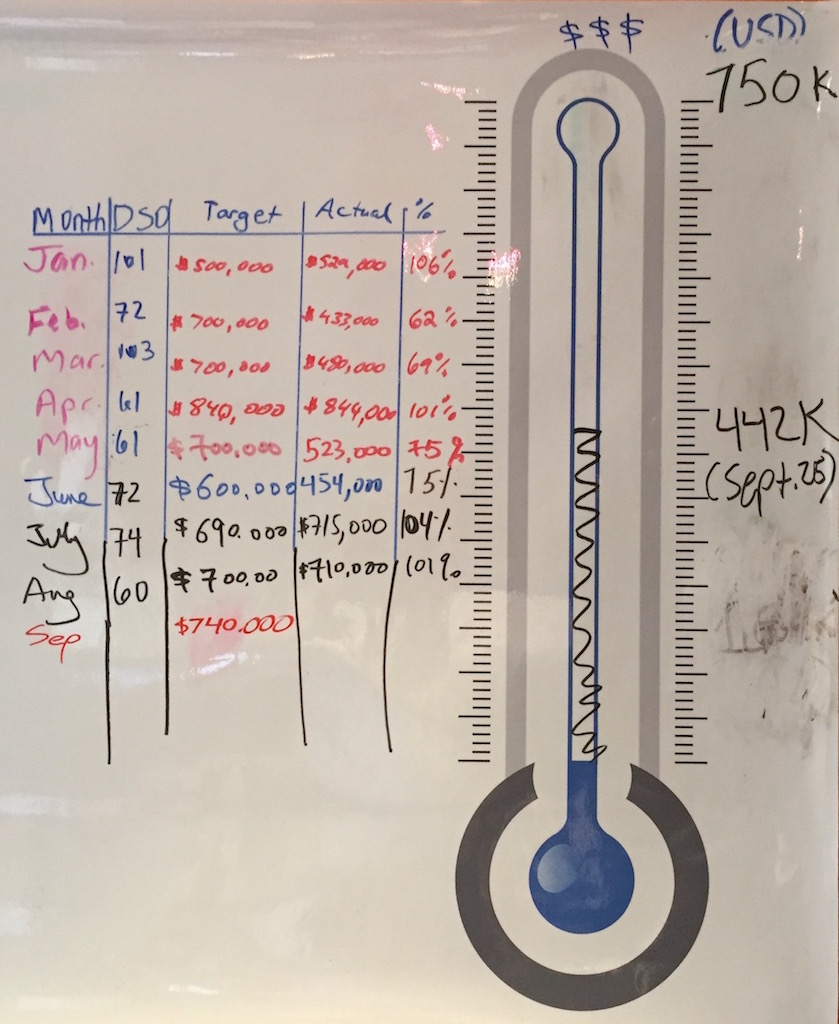 $$$
(USD)
750K
Month DSO Target Actual %
Jan. 101 $500,000 $529,000 106%
Feb. 72 $700,000 $433,000 62%
Mar. 103 $700,000 $480,000 69%
Apr. 61 $840,000 $844,000 101%
May 61 $700.000 523,000 75%
June 72 $600.000 454,000 75%
July 74 $690.000 $715,000 104%
Aug 60 $700.00 $710,000 101%
Sep $740.000
442K
(Sept.25)